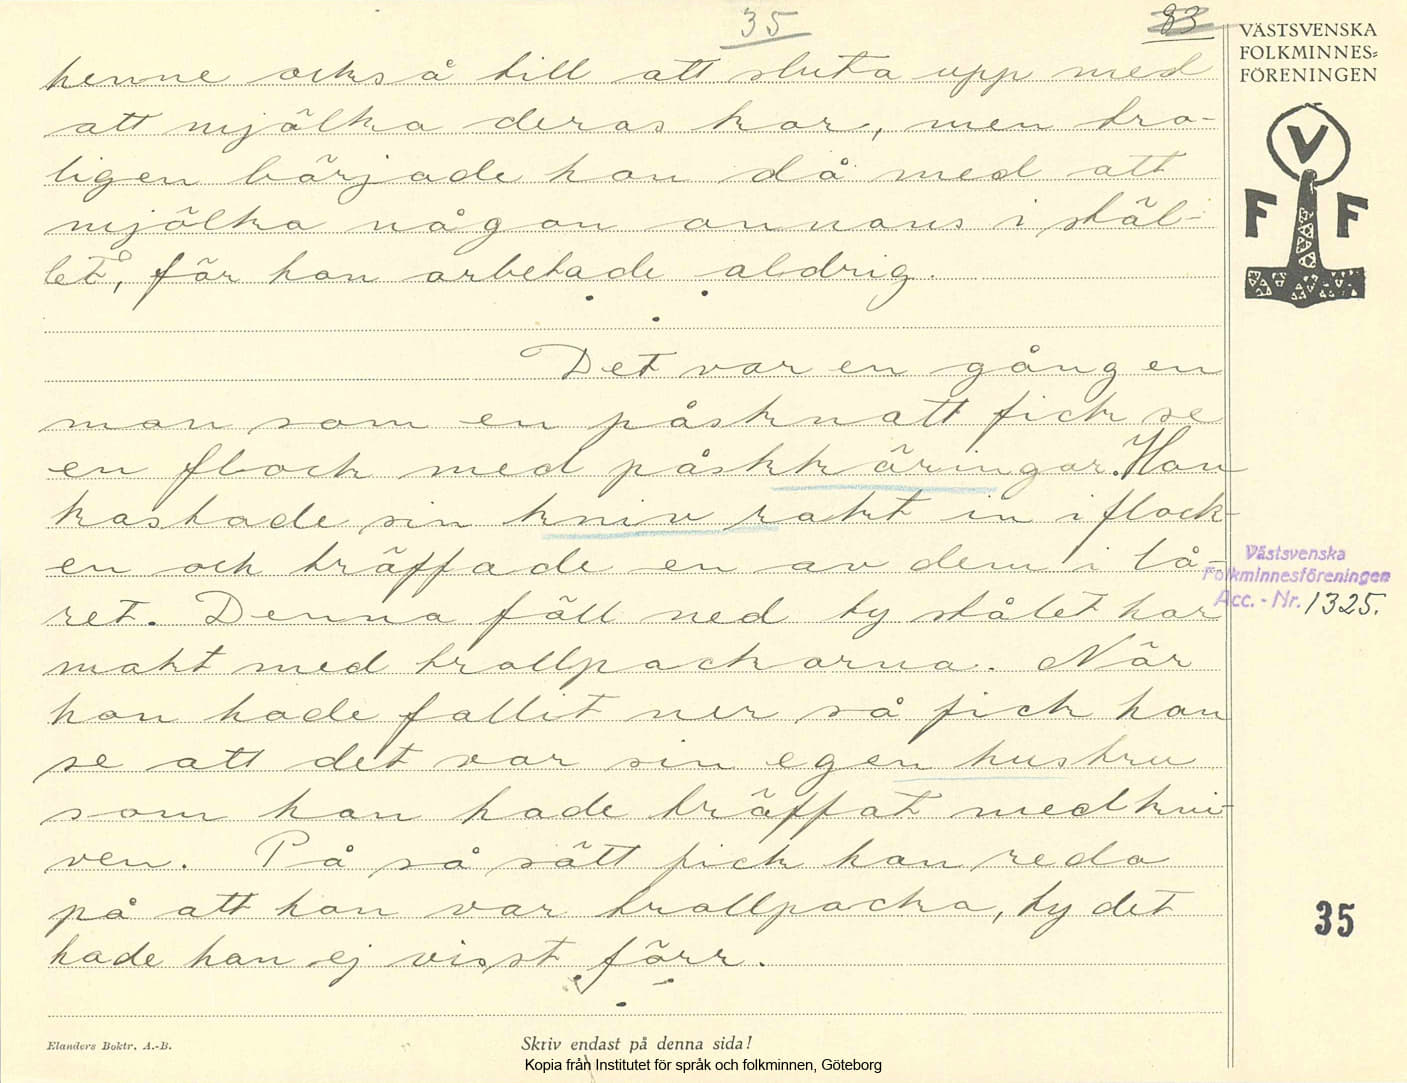 35
83
henne också till att sluta upp med
att mjälka deras kor, men tro-
ligen började hon då med att
mjölka någon annans i stäl-
let, för hon arbetade aldrig.
Det var en gång en
man som en påsknatt fick se
en flock med påskkäringar. Han
kastade sin kniv rakt in i flock-
en och träffade en av dem i lå-
ret. Denna föll ned ty stålet har
makt med trollpackorna. När
hon hade fallit ner så fick han
se att det var sin egen hustru
som han hade träffat med kni-
ven. På så sätt fick han reda
på att hon var trollpacka, ty det
hade han ej visst förr.
Elanders Boktr. A.-B.
Skriv endast på denna sida!
Kopia från Institutet för språk och folkminnen, Göteborg
VÄSTSVENSKA
FOLKMINNES=
FÖRENINGEN
V
F F
Västsvenska
Folkminnesföreningen
Acc. - Nr. 1325.
35